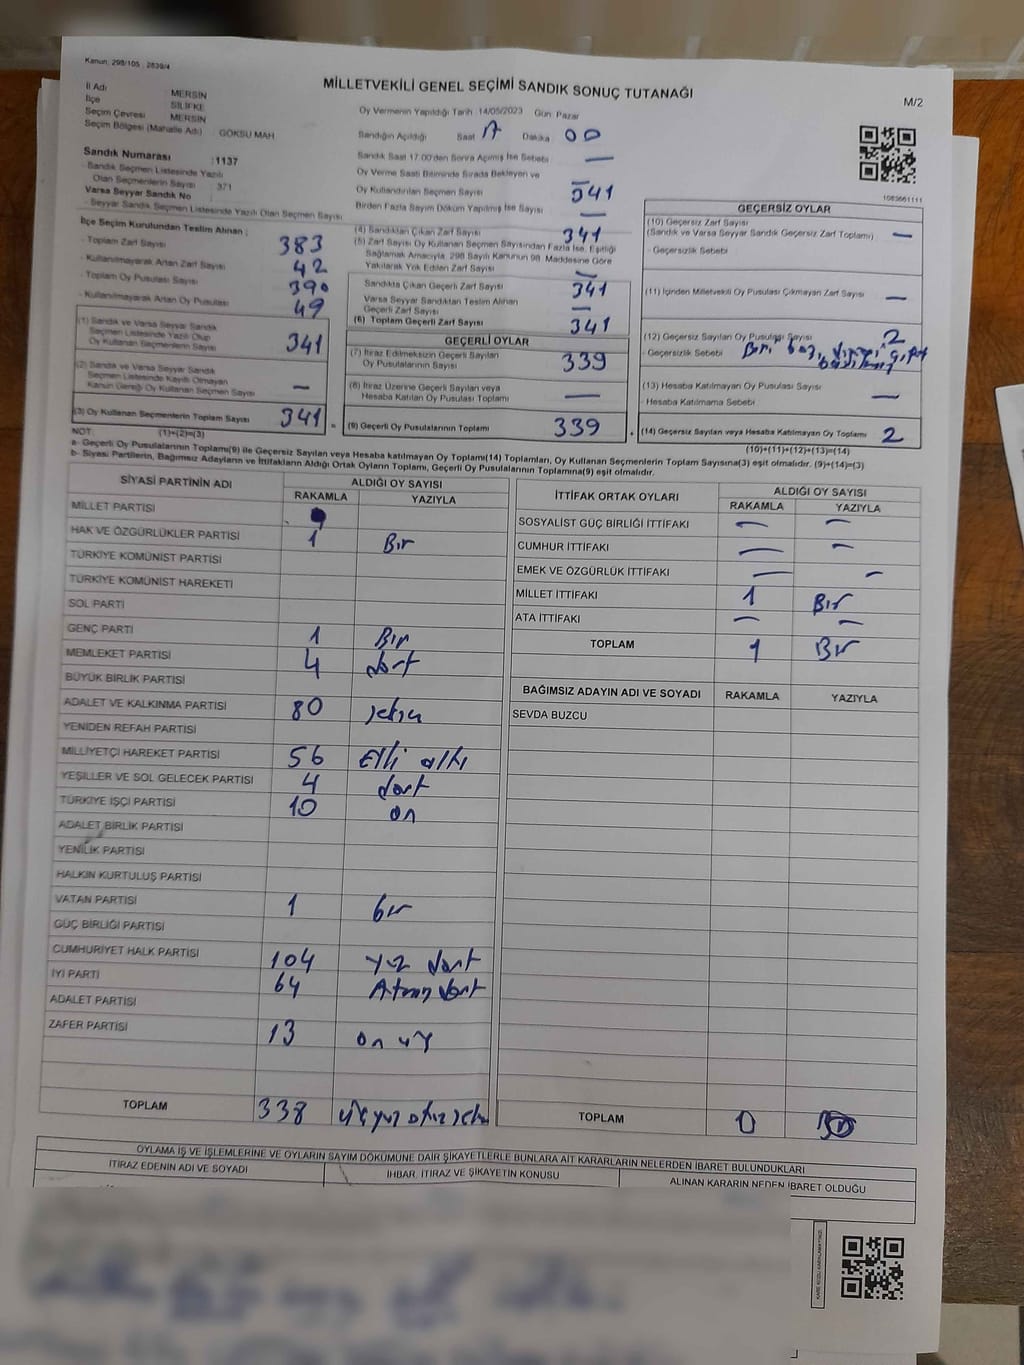 Kanun: 298/105 , 2839/4
MİLLETVEKİLİ GENEL SEÇİMİ SANDIK SONUÇ TUTANAĞI
M/2
İl Adı MERSİN
İlçe SİLİFKE
Seçim Çevresi MERSİN
Seçim Bölgesi (Mahalle Adı) : GÖKSU MAH
Sandık Numarası :1137
- Sandık Seçmen Listesinde Yazılı
Olan Seçmenlerin Sayısı : 371
Varsa Seyyar Sandık No
- Seyyar Sandık Seçmen Listesinde Yazılı Olan Seçmen Sayısı
İlçe Seçim Kurulundan Teslim Alınan ;
- Toplam Zarf Sayısı 383
- Kullanılmayarak Artan Zarf Sayısı 42
- Toplam Oy Pusulası Sayısı 390
- Kullanılmayarak Artan Oy Pusulası 49
(1) Sandık ve Varsa Seyyar Sandık
Seçmen Listesinde Yazılı Olup
Oy Kullanan Seçmenlerin Sayısı 341
(2) Sandık ve Varsa Seyyar Sandık
Seçmen Listesinde Kayıtlı Olmayan
Kanun Gereği Oy Kullanan Seçmen Sayısı —
(3) Oy Kullanan Seçmenlerin Toplam Sayısı 341
Oy Vermenin Yapıldığı Tarih :14/05/2023 Gün: Pazar
Sandığın Açıldığı Saat 17 Dakika 00
Sandık Saat 17:00'den Sonra Açılmış İse Sebebi —
Oy Verme Saati Bitiminde Sırada Bekleyen ve
Oy Kullandırılan Seçmen Sayısı 341
Birden Fazla Sayım Döküm Yapılmış İse Sayısı —
(4) Sandıktan Çıkan Zarf Sayısı 341
(5) Zarf Sayısı Oy Kullanan Seçmen Sayısından Fazla İse, Eşitliği
Sağlamak Amacıyla, 298 Sayılı Kanunun 98. Maddesine Göre
Yakılarak Yok Edilen Zarf Sayısı —
Sandıkta Çıkan Geçerli Zarf Sayısı 341
Varsa Seyyar Sandıktan Teslim Alınan
Geçerli Zarf Sayısı —
(6) Toplam Geçerli Zarf Sayısı 341
GEÇERLİ OYLAR
(7) İtiraz Edilmeksizin Geçerli Sayılan
Oy Pusulalarının Sayısı 339
(8) İtiraz Üzerine Geçerli Sayılan veya
Hesaba Katılan Oy Pusulası Toplamı —
= (9) Geçerli Oy Pusulalarının Toplamı 339
1083661111
GEÇERSİZ OYLAR
(10) Geçersiz Zarf Sayısı
(Sandık ve Varsa Seyyar Sandık Geçersiz Zarf Toplamı) —
- Geçersizlik Sebebi
(11) İçinden Milletvekili Oy Pusulası Çıkmayan Zarf Sayısı —
(12) Geçersiz Sayılan Oy Pusulası Sayısı 2
- Geçersizlik Sebebi Biri boş, biri çift
(13) Hesaba Katılmayan Oy Pusulası Sayısı —
- Hesaba Katılmama Sebebi
+ (14) Geçersiz Sayılan veya Hesaba Katılmayan Oy Toplamı 2
NOT: (1)+(2)=(3) (10)+(11)+(12)+(13)=(14)
a- Geçerli Oy Pusulalarının Toplamı(9) ile Geçersiz Sayılan veya Hesaba katılmayan Oy Toplamı(14) Toplamları, Oy Kullanan Seçmenlerin Toplam Sayısına(3) eşit olmalıdır. (9)+(14)=(3)
b- Siyasi Partilerin, Bağımsız Adayların ve İttifakların Aldığı Ortak Oyların Toplamı, Geçerli Oy Pusulalarının Toplamına(9) eşit olmalıdır.
SİYASİ PARTİNİN ADI ALDIĞI OY SAYISI
RAKAMLA YAZIYLA
MİLLET PARTİSİ
HAK VE ÖZGÜRLÜKLER PARTİSİ 1 Bir
TÜRKİYE KOMÜNİST PARTİSİ
TÜRKİYE KOMÜNİST HAREKETİ
SOL PARTİ
GENÇ PARTİ 1 Bir
MEMLEKET PARTİSİ 4 dört
BÜYÜK BİRLİK PARTİSİ
ADALET VE KALKINMA PARTİSİ 80 seksen
YENİDEN REFAH PARTİSİ
MİLLİYETÇİ HAREKET PARTİSİ 56 Elli altı
YEŞİLLER VE SOL GELECEK PARTİSİ 4 dört
TÜRKİYE İŞÇİ PARTİSİ 10 on
ADALET BİRLİK PARTİSİ
YENİLİK PARTİSİ
HALKIN KURTULUŞ PARTİSİ
VATAN PARTİSİ 1 bir
GÜÇ BİRLİĞİ PARTİSİ
CUMHURİYET HALK PARTİSİ 104 yüz dört
İYİ PARTİ 64 Atmış dört
ADALET PARTİSİ
ZAFER PARTİSİ 13 on üç
TOPLAM 338 üçyüz otuz sekiz
İTTİFAK ORTAK OYLARI ALDIĞI OY SAYISI
RAKAMLA YAZIYLA
SOSYALİST GÜÇ BİRLİĞİ İTTİFAKI — —
CUMHUR İTTİFAKI — —
EMEK VE ÖZGÜRLÜK İTTİFAKI — —
MİLLET İTTİFAKI 1 Bir
ATA İTTİFAKI — —
TOPLAM 1 Bir
BAĞIMSIZ ADAYIN ADI VE SOYADI RAKAMLA YAZIYLA
SEVDA BUZCU
TOPLAM 0
OYLAMA İŞ VE İŞLEMLERİNE VE OYLARIN SAYIM DÖKÜMÜNE DAİR ŞİKAYETLERLE BUNLARA AİT KARARLARIN NELERDEN İBARET BULUNDUKLARI
İTİRAZ EDENİN ADI VE SOYADI İHBAR, İTİRAZ VE ŞİKAYETİN KONUSU ALINAN KARARIN NEDEN İBARET OLDUĞU